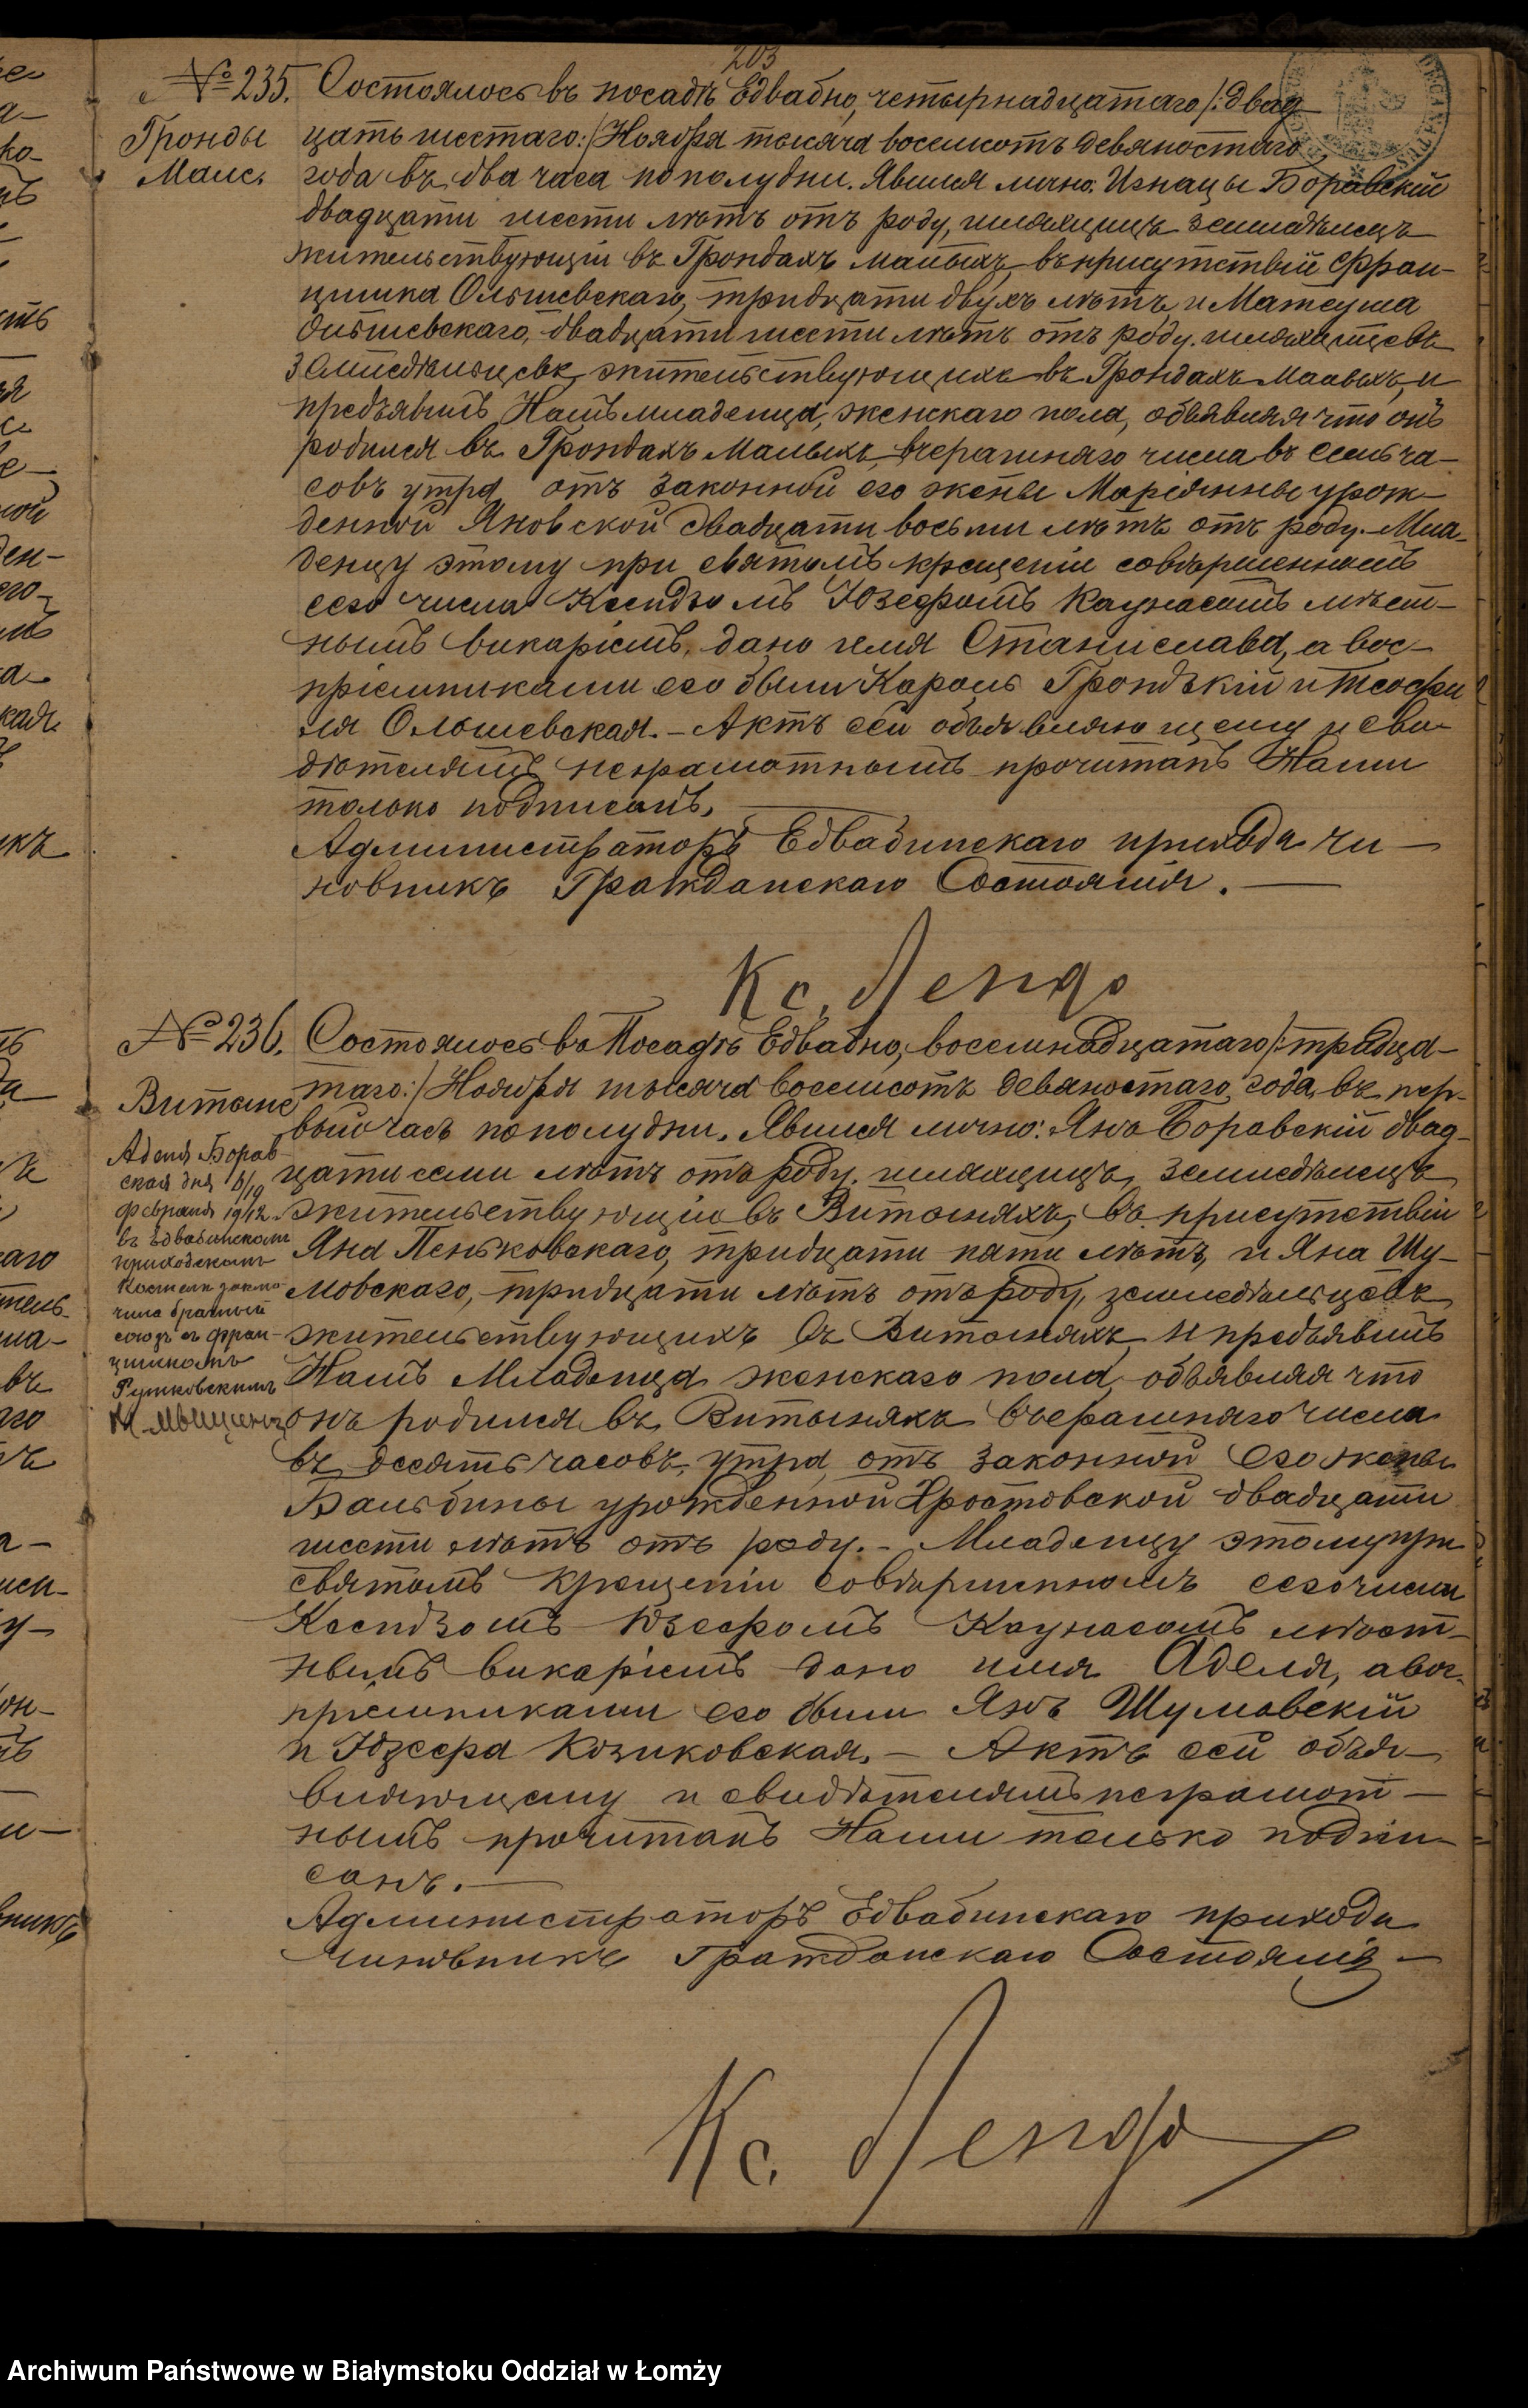 203
№ 235.
Гронды
Малє.
Состоялось въ посадѣ Едвабно, четырнадцатаго /: двад
цать шестаго:/ Ноября тысяча восемсотъ девяностаго
года въ два часа пополудни. Явился лично: Игнацы Боравскій
двадцати шести лѣтъ отъ роду, шляхтицъ земледѣлецъ
жительствующій въ Грондахъ малыхъ, въ присутствіи Фран-
цишка Ольшевскаго, тридцати двухъ лѣтъ, и Матеуша
Ольшевскаго, двадцати шести лѣтъ отъ роду, шляхтицевъ
земледѣльцевъ, жительствующихъ въ Грондахъ Малыхъ, и
предъявилъ Намъ младенца, женскаго пола, объявляя что онъ
родился въ Грондахъ Малыхъ, вчерашняго числа въ семь ча-
совъ утра, отъ законной его жены Маріянны урож-
денной Яновской двадцати восьми лѣтъ отъ роду. Мла-
денцу этому при святомъ крещеніи совѣршенномъ
сего числа Ксендзомъ Юзефомъ Каунасомъ мѣст-
нымъ викаріемъ, дано имя Станислава, а вос-
пріемниками его были Кароль Грондзкій и Теофи
ля Ольшевская. - Актъ сей объявляющему и сви-
дѣтелямъ неграмотнымъ прочитанъ Нами
только подписанъ.
Администраторъ Едвабинскаго прихода чи-
новникъ Гражданскаго Состоянія.
Кс. Лендо
№ 236.
Витыне
Состоялось въ Посадѣ Едвабно, восемнадцатаго /: тридца-
таго:/ Ноября тысяча восемсотъ девяностаго года, въ пер-
вый часъ пополудни. Явился лично: Янъ Боравскій двад-
цати семи лѣтъ отъ роду, шляхтицъ, земледѣлецъ
жительствующій въ Витыняхъ, въ присутствіи
Яна Пеньковскаго, тридцати пяти лѣтъ, и Яна Шу-
мовскаго, тридцати лѣтъ отъ роду, земледѣльцевъ
жительствующихъ въ Витыняхъ, и предъявилъ
Намъ Младенца женскаго пола, объявляя что
онъ родился въ Витыняхъ вчерашняго числа
въ десять часовъ утра, отъ законной его жены
Бальбины урожденной Хростовской двадцати
шести лѣтъ отъ роду. - Младенцу этому при
святомъ крещеніи совѣршенномъ сего числа
Ксендзомъ Юзефомъ Каунасомъ мѣст-
нымъ викаріемъ дано имя Аделя, а вос-
пріемниками его были Янъ Шумовскій
и Юзефа Козиковская. - Актъ сей объя-
вляющему и свидѣтелямъ неграмот-
нымъ прочитанъ Нами только подпи-
санъ.
Администраторъ Едвабинскаго прихода
Чиновникъ Гражданскаго Состоянія
Аделя Борав-
ская дня 6/19
февраля 1912
въ Едвабинскомъ
приходскомъ
Костеле заклю-
чила брачный
союзъ съ Фран-
цишкомъ
Рутковскимъ
Кс. Лендо
Archiwum Państwowe w Białymstoku Oddział w Łomży